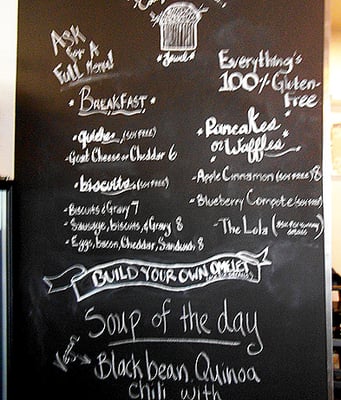 Ask
for A
Full Menu!
Jewel
Everything's
100% Gluten-
Free
BREAKFAST
quiche (soy free)
- Goat Cheese or Cheddar 6
biscuits (soy free)
- Biscuits & Gravy 7
- Sausage, biscuits, & Gravy 8
- Eggs, bacon, Cheddar, Sandwich 8
Pancakes
or Waffles
- Apple Cinnamon (soy free) 8
- Blueberry Compote (soy free)
- The Lola (ask for
BUILD YOUR OWN OMELET
Soup of the day
Black bean Quinoa
Chili with